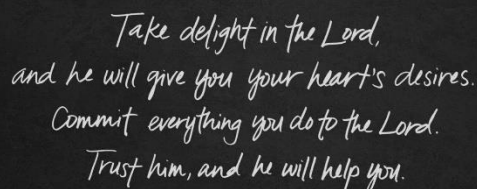 Take delight in the Lord,
and he will give you your heart's desires.
Commit everything you do to the Lord.
Trust him, and he will help you.